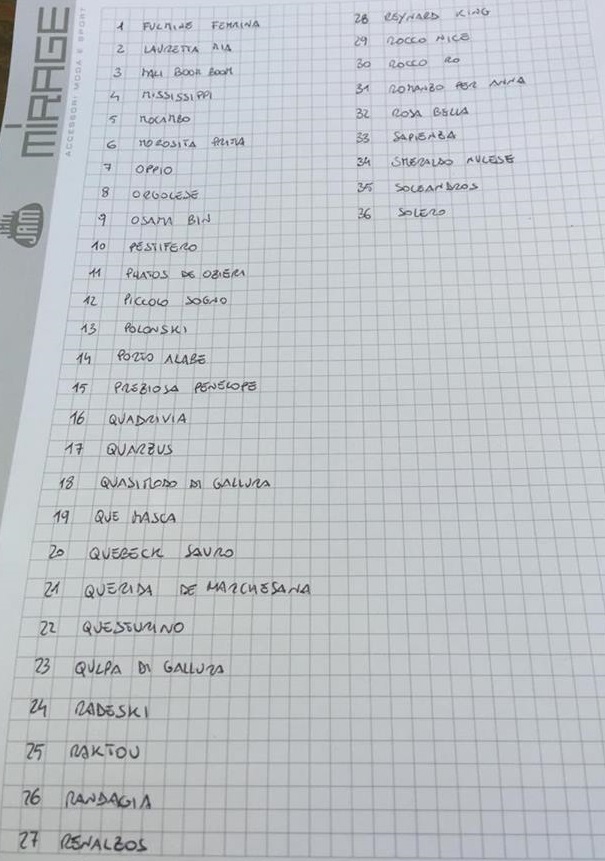 MIRAGE
ACCESSORI MODA E SPORT
JAM
1 FULMINE FEMMINA
2 LAURETTA MIA
3 MALI BOOM BOOM
4 MISSISSIPPI
5 MOCAMBO
6 MOROSITA PRIMA
7 OPPIO
8 ORGOLESE
9 OSAMA BIN
10 PESTIFERO
11 PHATOS DE OZIERI
12 PICCOLO SOGNO
13 POLONSKI
14 PORTO ALABE
15 PREZIOSA PENELOPE
16 QUADRIVIA
17 QUARZUS
18 QUASIMODO DI GALLURA
19 QUE MASCA
20 QUEBECK SAURO
21 QUERIDA DE MARCHESANA
22 QUESTURINO
23 QULPA DI GALLURA
24 RADESKI
25 RAKTOU
26 RANDAGIA
27 RENALZOS
28 REYNARD KING
29 ROCCO NICE
30 ROCCO RO
31 ROMANZO PER ANNA
32 ROSA BELLA
33 SAPIENZA
34 SMERALDO NULESE
35 SOLEANDROS
36 SOLERO